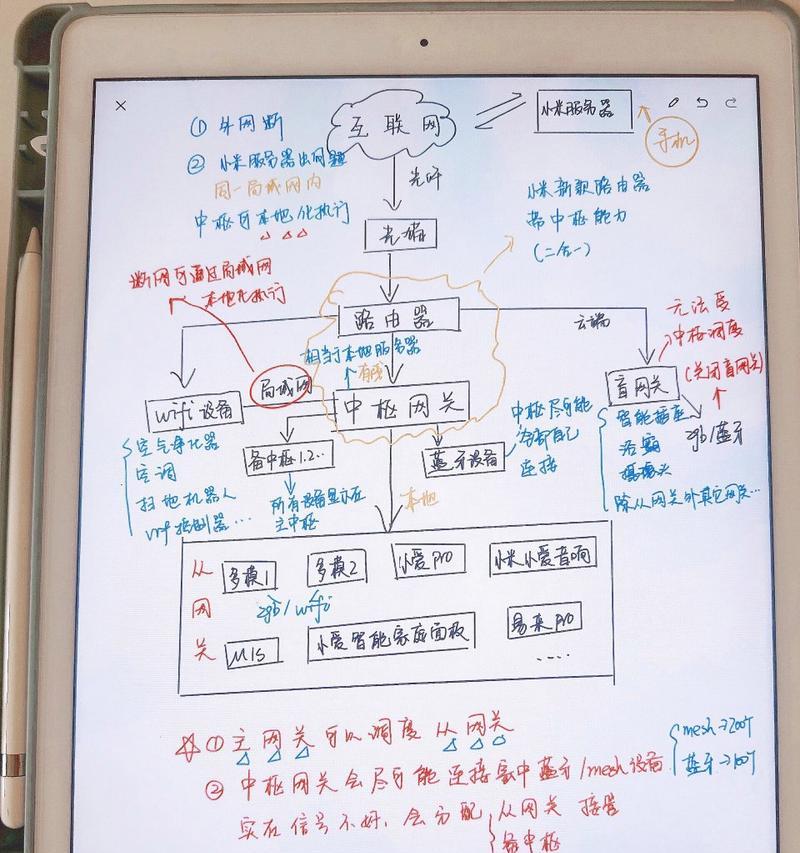 互联网
小米服务器
手机
① 外网断
② 小米服务器出问题
同一局域网内
中枢可本地化执行
光纤
光猫
小米新款路由器
带中枢能力
(二合一)
断网可通过局域网
本地化执行
路由器
云端
相当于本地服务器
有线
无法受
中枢调度
(关闭盲网关)
局域网
盲网关
wifi设备
中枢网关
空气净化器
空调
扫地机器人
vrf控制器...
备中枢1.2..
所有设备显示在
主中枢
蓝牙设备
中枢尽可能
自己
连接
智能插座
浴霸
摄像头
除从网关外其它网关...
zgb/蓝牙
本地
从网关
多模1
多模2
小爱pro
小米小爱音响
zgb/wifi
M1S
小爱智能家庭面板
易来pro
.....
① 主网关可以调度从网关
② 中枢网关会尽可能连接家中蓝牙/mesh设备
mesh→200个
蓝牙→100个
实在信号不好,会分配
从网关 接管
备中枢